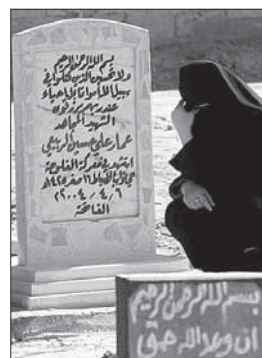 بسم الله الرحمن الرحيم
ولا تحسبن الذين قتلوا في
سبيل الله أمواتا بل أحياء
عند ربهم يرزقون
الشهيد المجاهد
عمار علي حسين الربيعي
استشهد في معركة الفلوجة
١٦ صفر ١٤٢٥هـ
٢٠٠٤/٤/٦
الفاتحة
بسم الله الرحمن الرحيم
ان وعد الله حق